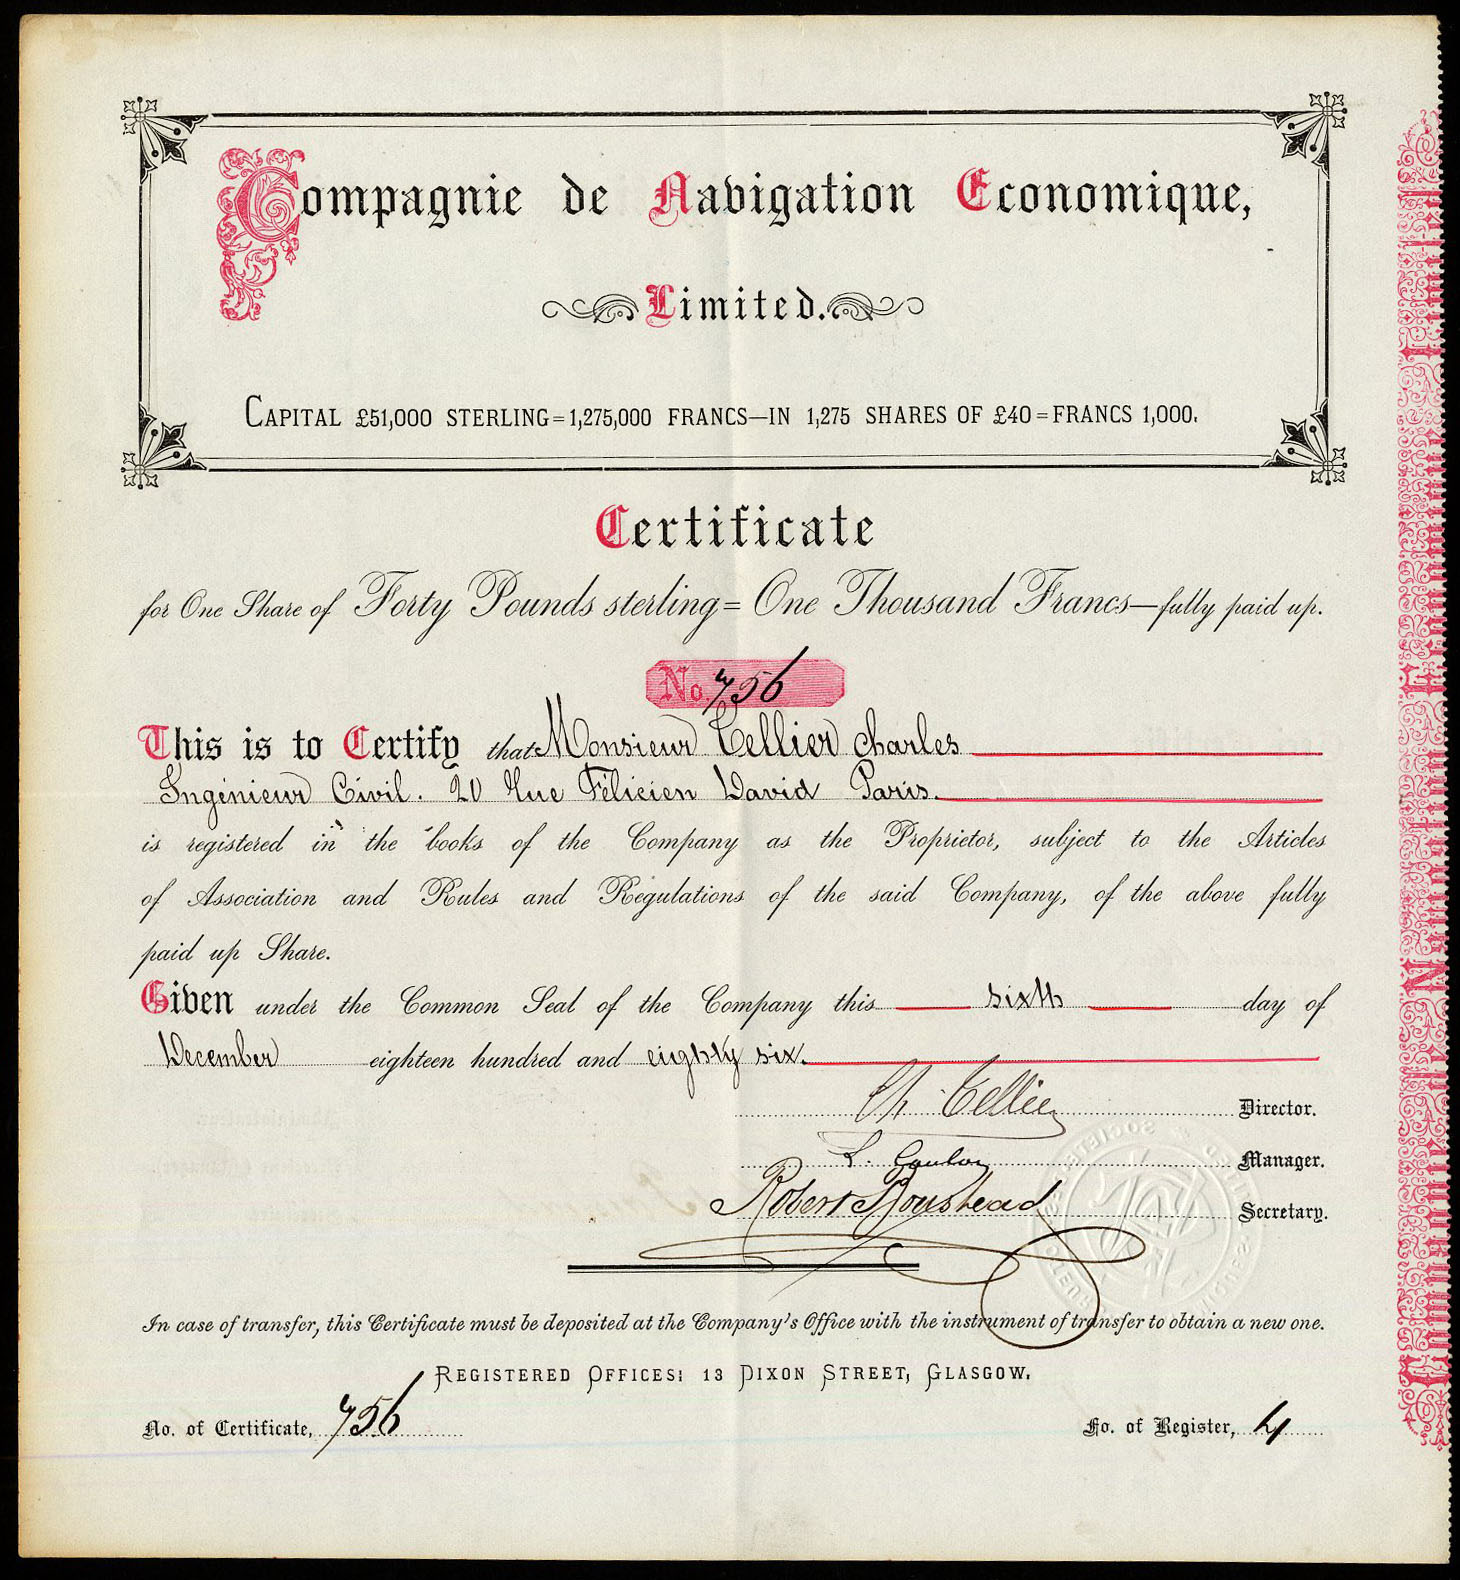 Compagnie de Navigation Economique,
Limited.
CAPITAL £51,000 STERLING=1,275,000 FRANCS—IN 1,275 SHARES OF £40=FRANCS 1,000.
Certificate
for One Share of Forty Pounds sterling = One Thousand Francs—fully paid up.
No. 756
This is to Certify that Monsieur Tellier Charles
Ingénieur Civil. 20 Rue Félicien David Paris.
is registered in the books of the Company as the Proprietor, subject to the Articles
of Association and Rules and Regulations of the said Company, of the above fully
paid up Share.
Given under the Common Seal of the Company this sixth day of
December eighteen hundred and eighty six.
Ch. Tellier Director.
Manager.
Robert Boustead Secretary.
In case of transfer, this Certificate must be deposited at the Company's Office with the instrument of transfer to obtain a new one.
REGISTERED OFFICES: 13 DIXON STREET, GLASGOW.
No. of Certificate, 756 Fo. of Register, 4
Compagnie de Navigation Economique Limited